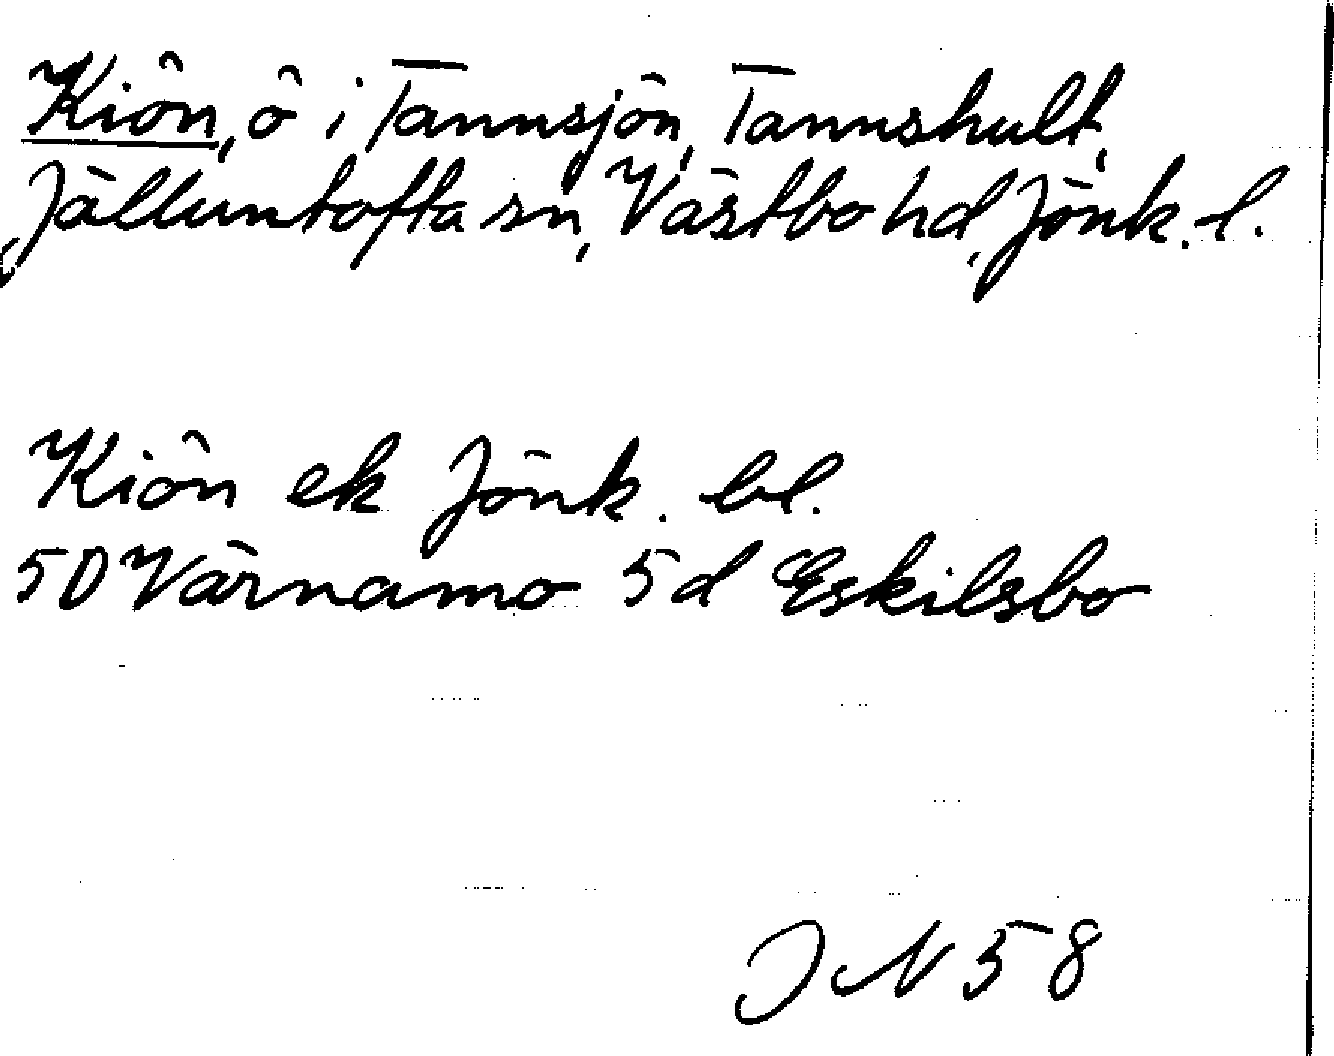 Kiön, ö i Tannsjön, Tannshult,
Jälluntofta sn, Västbo hd, Jönk. l.
Kiön ek Jönk. bl.
5D Värnamo 5d Eskilsbo
JN58